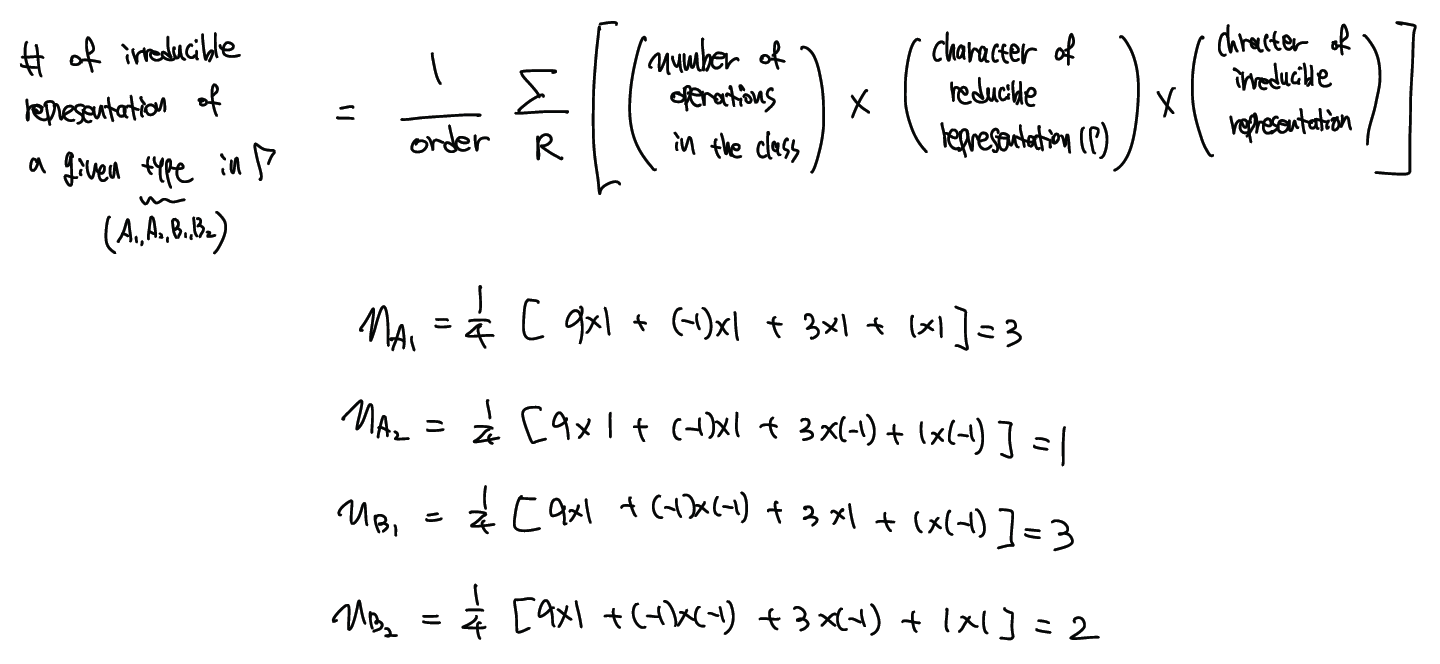 # of irreducible
representation of
a given type in Γ
(A₁, A₂, B₁, B₂)
= 1/order Σ_R [ (number of operations in the class) × (character of reducible representation (Γ)) × (chracter of irreducible representation) ]
n_A₁ = 1/4 [ 9×1 + (-1)×1 + 3×1 + 1×1 ] = 3
n_A₂ = 1/4 [ 9×1 + (-1)×1 + 3×(-1) + 1×(-1) ] = 1
n_B₁ = 1/4 [ 9×1 + (-1)×(-1) + 3×1 + 1×(-1) ] = 3
n_B₂ = 1/4 [ 9×1 + (-1)×(-1) + 3×(-1) + 1×1 ] = 2